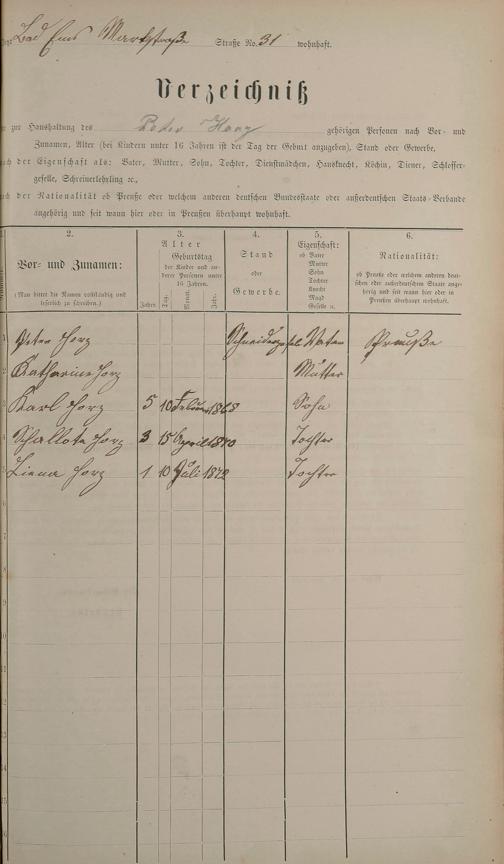 Bad Ems Marktstraße Straße No. 31 wohnhaft.
Verzeichniß
zur Haushaltung des Peter Horz gehörigen Personen nach Vor- und
Zunamen, Alter (bei Kindern unter 16 Jahren ist der Tag der Geburt anzugeben), Stand oder Gewerbe,
nach der Eigenschaft als: Vater, Mutter, Sohn, Tochter, Dienstmädchen, Hausknecht, Köchin, Diener, Schlosser-
geselle, Schreinerlehrling ꝛc.,
nach der Nationalität ob Preuße oder welchem anderen deutschen Bundesstaate oder außerdeutschen Staats-Verbande
angehörig und seit wann hier oder in Preußen überhaupt wohnhaft.
2. 3. 4. 5. 6.
Vor- und Zunamen:
(Man bittet die Namen vollständig und
leserlich zu schreiben.)
Alter
Geburtstag
der Kinder und an-
derer Personen unter
16 Jahren.
Jahre. Tag. Monat. Jahr.
Stand
oder
Gewerbe.
Eigenschaft:
ob Vater
Mutter
Sohn
Tochter
Knecht
Magd
Geselle u.
Nationalität:
ob Preuße oder welchem anderen deut-
schen oder außerdeutschen Staate ange-
hörig und seit wann hier oder in
Preußen überhaupt wohnhaft.
1 Peter Horz Vater Preuße
2 Katharine Horz Mutter
3 Karl Horz 5 10 Februar 1868 Sohn
4 Schallote Horz 3 15 April 1870 Tochter
5 Liena Horz 1 10 Juli 1872 Tochter